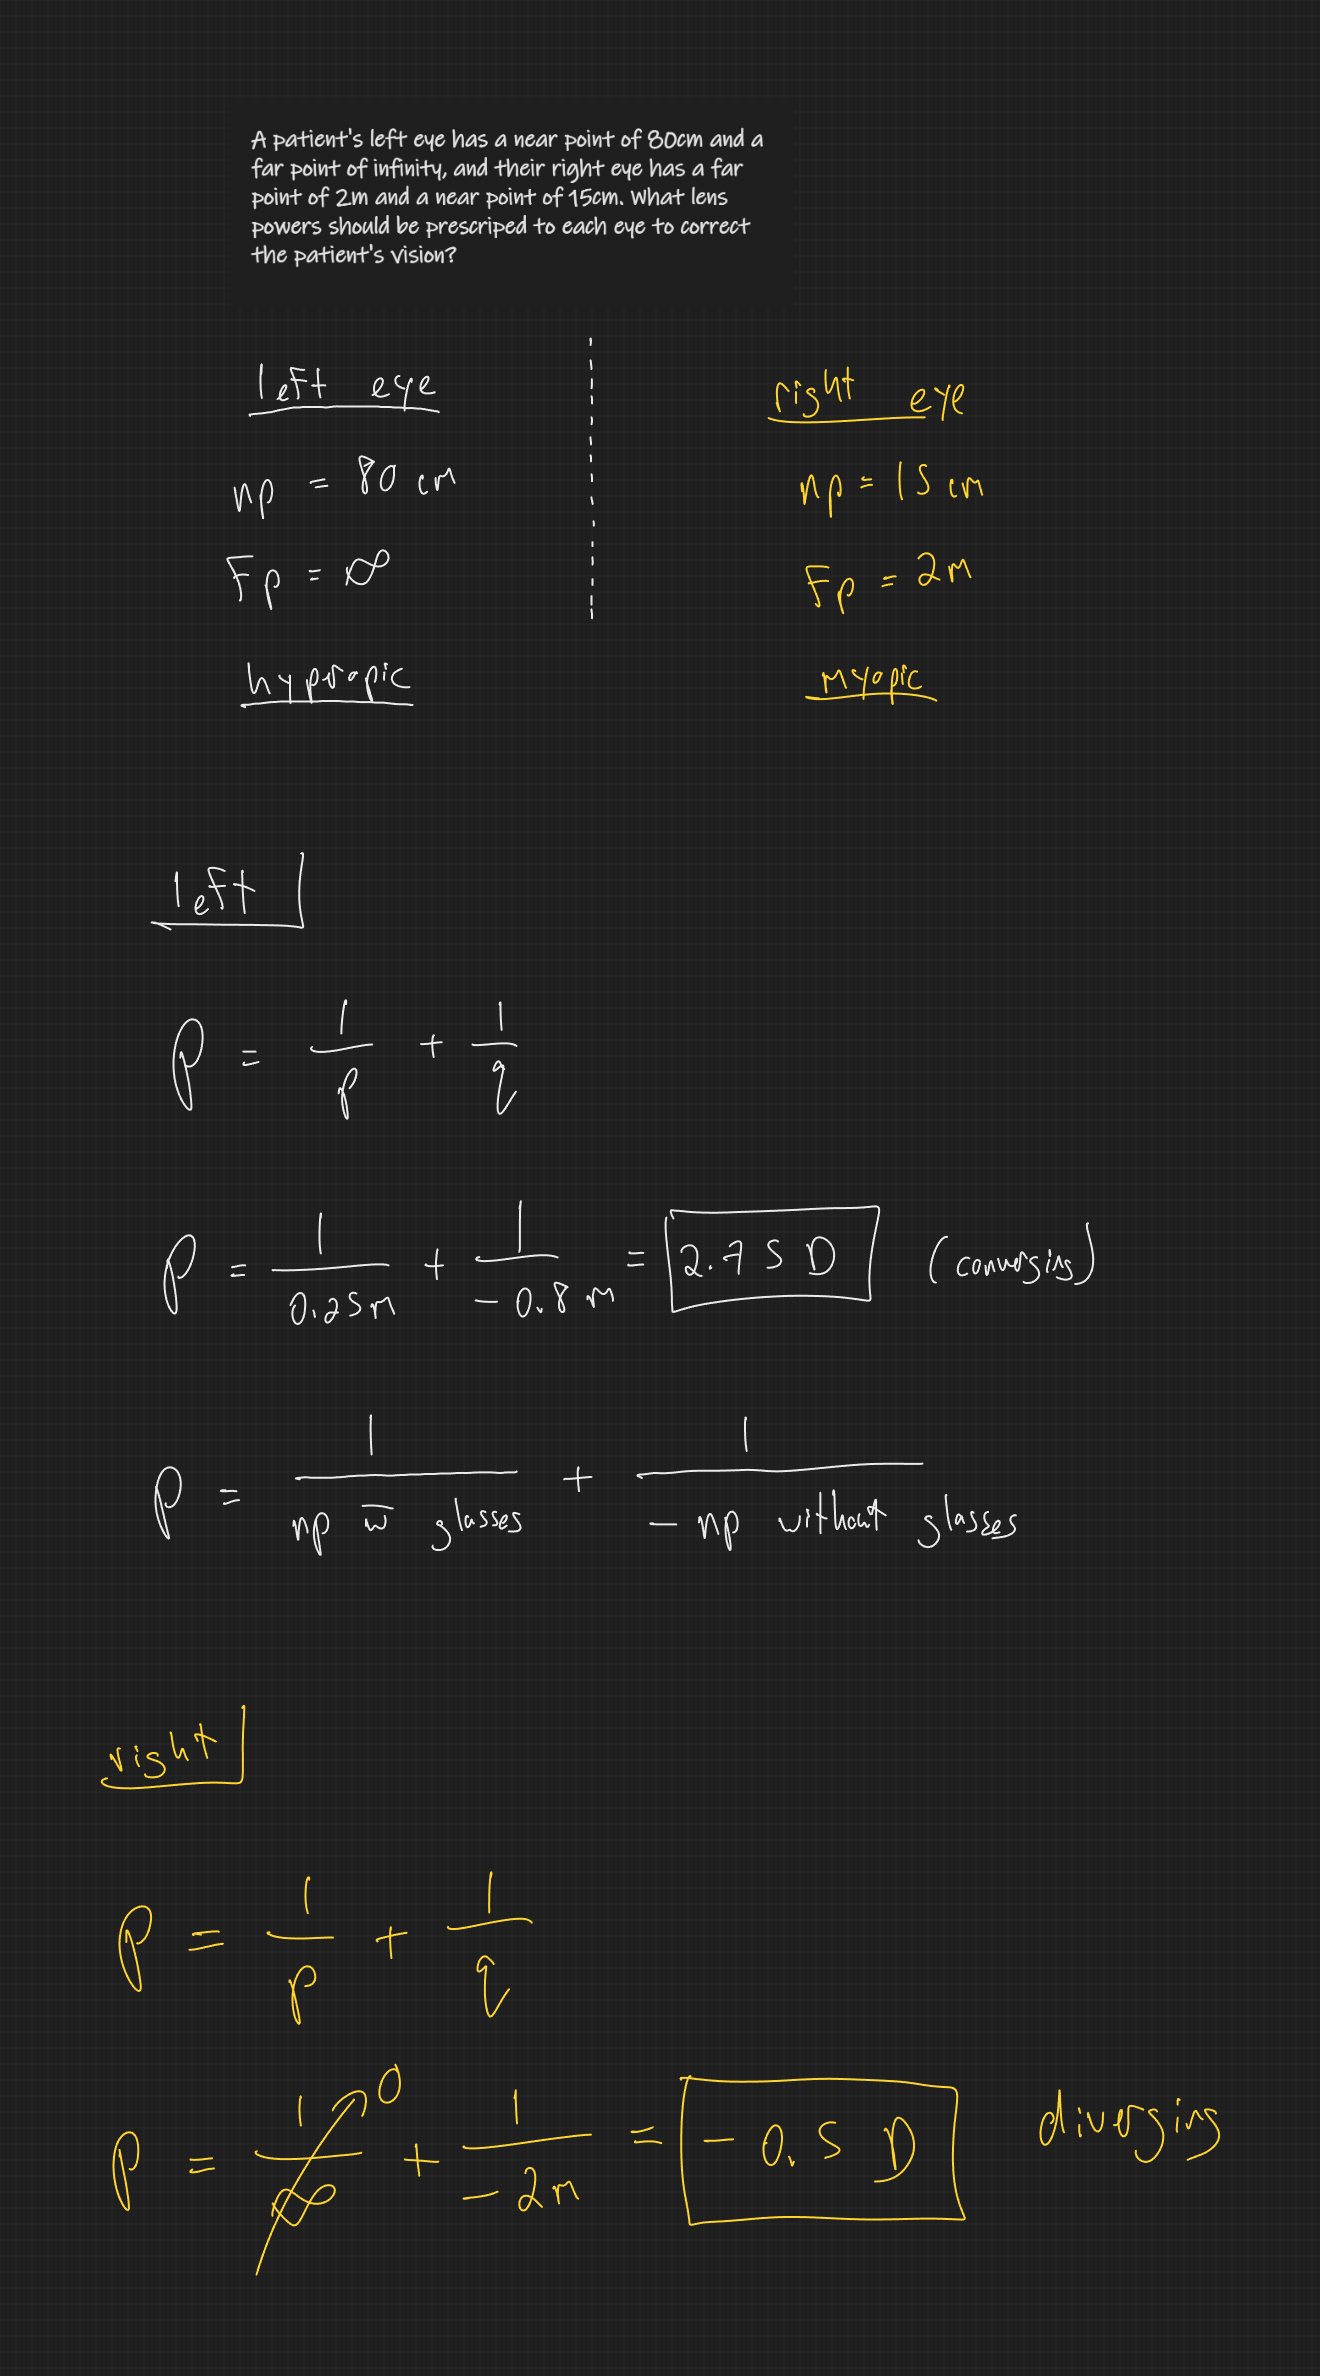 A patient's left eye has a near point of 80cm and a
far point of infinity, and their right eye has a far
point of 2m and a near point of 15cm. What lens
powers should be prescriped to each eye to correct
the patient's vision?
left eye
np = 80 cm
Fp = ∞
hyperopic
right eye
np = 15 cm
Fp = 2m
myopic
left
P = 1/p + 1/q
P = 1/0.25m + 1/-0.8m = 2.75 D (converging)
P = 1/np w̄ glasses + 1/- np without glasses
right
P = 1/p + 1/q
P = 1/∞ 0 + 1/-2m = -0.5 D diverging